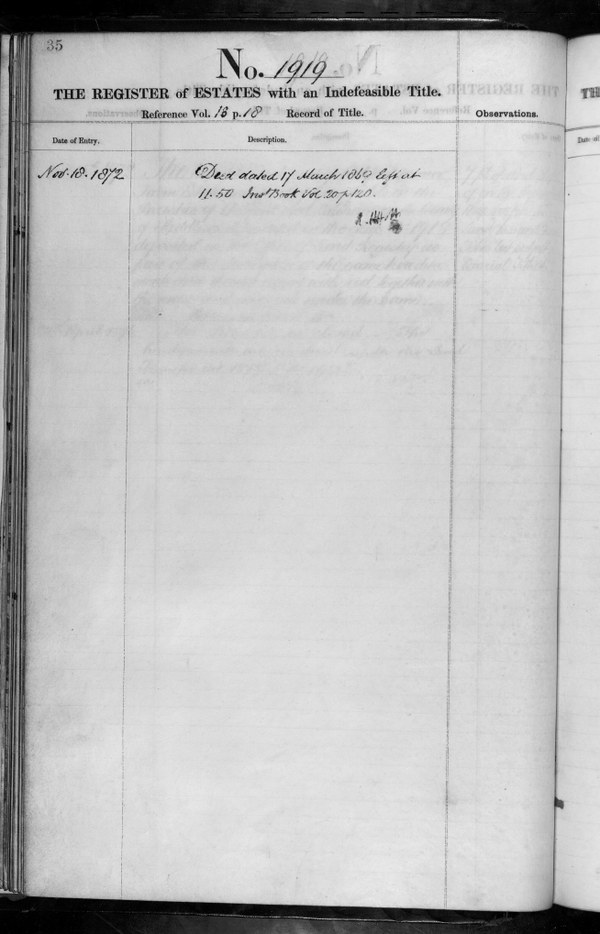 35
No. 1919
THE REGISTER of ESTATES with an Indefeasible Title.
Reference Vol. 13 p. 18 Record of Title.
Observations.
Date of Entry.
Description.
Nov. 18. 1872
Deed dated 17 March 1869 left at
11.50 Book Vol 20 p 120.
TH
Date of